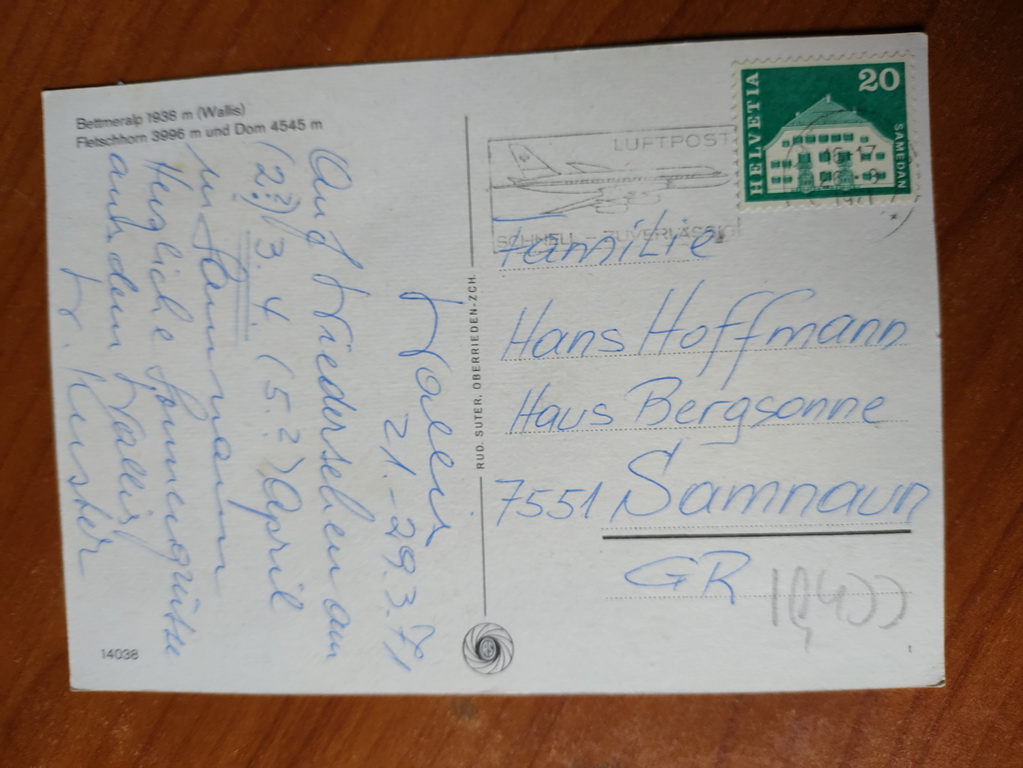 Bettmeralp 1938 m (Wallis)
Fletschhorn 3996 m und Dom 4545 m
21.-29.3.71
Auf Wiedersehen am
(2?)/3. 4. (5.?) April
in Samnaun
Herzliche Sonnengrüsse
aus dem Wallis
14038
RUD. SUTER, OBERRIEDEN-ZCH.
LUFTPOST
SCHNELL – ZUVERLÄSSIG
HELVETIA
20
SAMEDAN
Familie
Hans Hoffmann
Haus Bergsonne
7551 Samnaun
GR